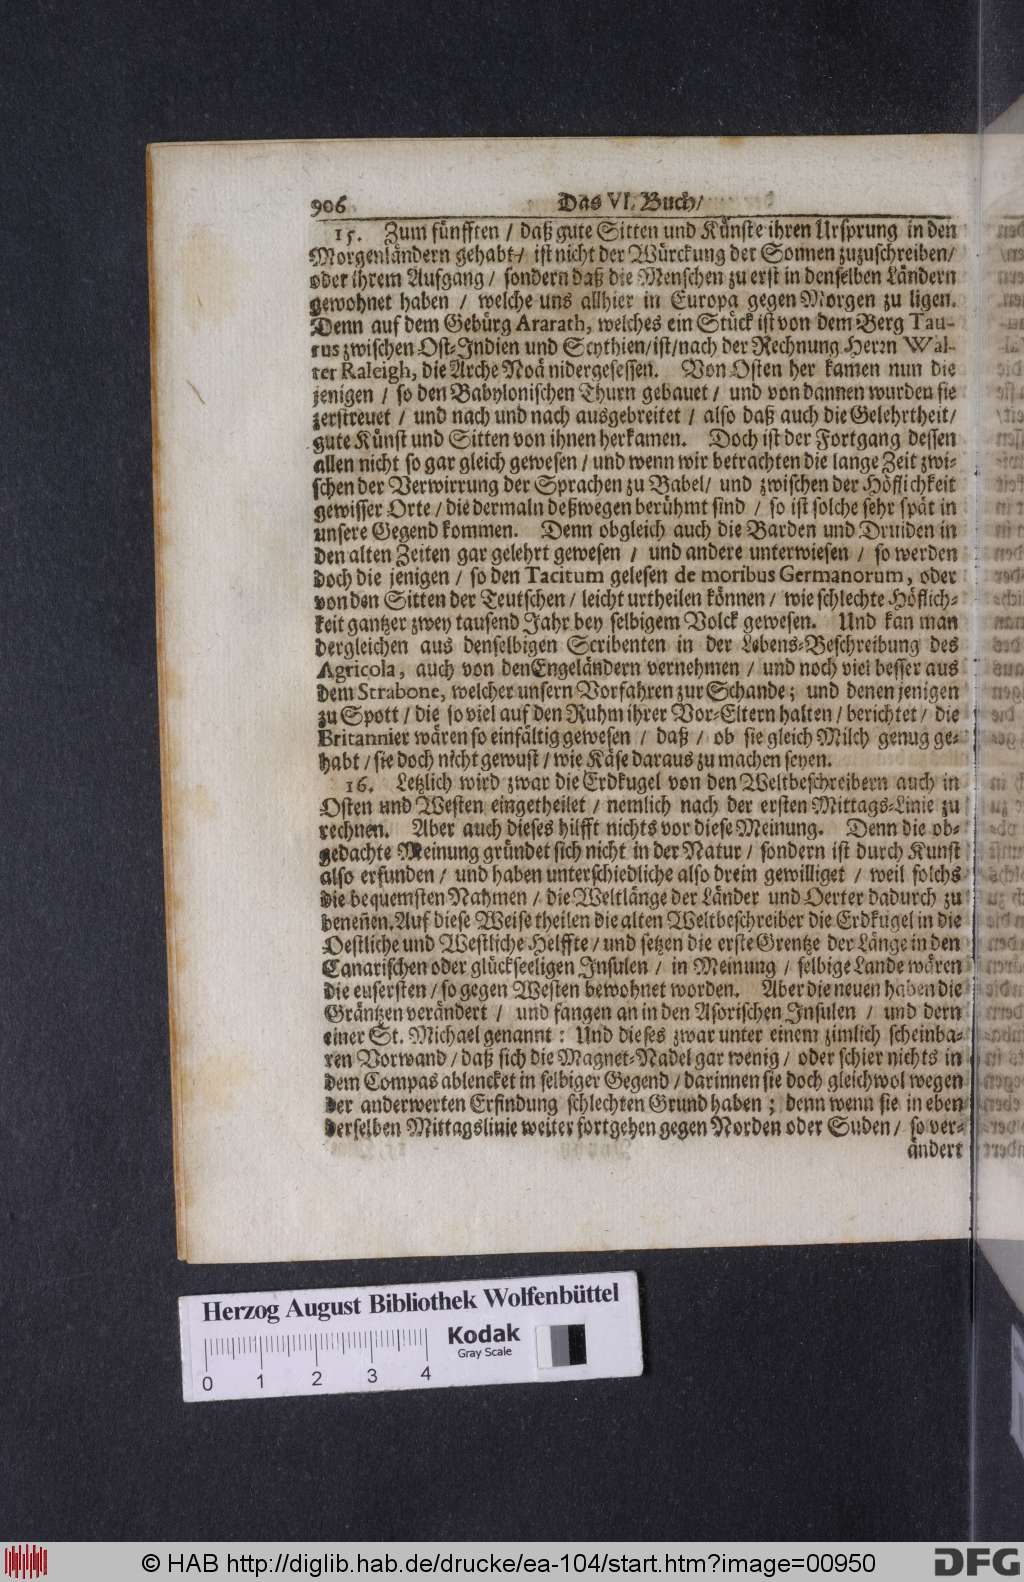 906 Das VI. Buch/
15. Zum fünfften / daß gute Sitten und Künste ihren Ursprung in den
Morgenländern gehabt / ist nicht der Würckung der Sonnen zuzuschreiben/
oder ihrem Aufgang / sondern daß die Menschen zu erst in denselben Ländern
gewohnet haben / welche uns allhier in Europa gegen Morgen zu ligen.
Denn auf dem Gebürg Ararath, welches ein Stück ist von dem Berg Tau-
rus zwischen Ost-Indien und Scythien/ist/nach der Rechnung Herrn Wal-
ter Raleigh, die Arche Noä nidergesessen. Von Osten her kamen nun die
jenigen / so den Babylonischen Thurn gebauet / und von dannen wurden sie
zerstreuet / und nach und nach ausgebreitet / also daß auch die Gelehrtheit/
gute Künst und Sitten von ihnen herkamen. Doch ist der Fortgang dessen
allen nicht so gar gleich gewesen / und wenn wir betrachten die lange Zeit zwi-
schen der Verwirrung der Sprachen zu Babel/ und zwischen der Höflichkeit
gewisser Orte / die dermaln deßwegen berühmt sind / so ist solche sehr spät in
unsere Gegend kommen. Denn obgleich auch die Barden und Druiden in
den alten Zeiten gar gelehrt gewesen / und andere unterwiesen / so werden
doch die jenigen / so den Tacitum gelesen de moribus Germanorum, oder
von den Sitten der Teutschen / leicht urtheilen können / wie schlechte Höflich-
keit gantzer zwey tausend Jahr bey selbigem Volck gewesen. Und kan man
dergleichen aus denselbigen Scribenten in der Lebens-Beschreibung des
Agricola, auch von den Engeländern vernehmen / und noch viel besser aus
dem Strabone, welcher unsern Vorfahren zur Schande; und denen jenigen
zu Spott / die so viel auf den Ruhm ihrer Vor-Eltern halten / berichtet / die
Britannier wären so einfältig gewesen / daß / ob sie gleich Milch genug ge-
habt / sie doch nicht gewust / wie Käse daraus zu machen seyen.
16. Letzlich wird zwar die Erdkugel von den Weltbeschreibern auch in
Osten und Westen eingetheilet / nemlich nach der ersten Mittags-Linie zu
rechnen. Aber auch dieses hilfft nichts vor diese Meinung. Denn die ob-
gedachte Meinung gründet sich nicht in der Natur / sondern ist durch Kunst
also erfunden / und haben unterschiedliche also drein gewilliget / weil solchs
die bequemsten Nahmen / die Weltlänge der Länder und Oerter dadurch zu
beneñen. Auf diese Weise theilen die alten Weltbeschreiber die Erdkugel in die
Oestliche und Westliche Helffte / und setzen die erste Grentze der Länge in den
Canarischen oder glückseeligen Insulen / in Meinung / selbige Lande wären
die eusersten / so gegen Westen bewohnet worden. Aber die neuen haben die
Gräntzen verändert / und fangen an in den Asorischen Insulen / und dern
einer St. Michael genannt: Und dieses zwar unter einem zimlich scheinba-
ren Vorwand / daß sich die Magnet-Nadel gar wenig / oder schier nichts in
dem Compas ablencket in selbiger Gegend / darinnen sie doch gleichwol wegen
der anderwerten Erfindung schlechten Grund haben; denn wenn sie in eben
derselben Mittagslinie weiter fortgehen gegen Norden oder Suden / so ver-
ändert
Herzog August Bibliothek Wolfenbüttel
Kodak
Gray Scale
0 1 2 3 4
© HAB http://diglib.hab.de/drucke/ea-104/start.htm?image=00950
DFG